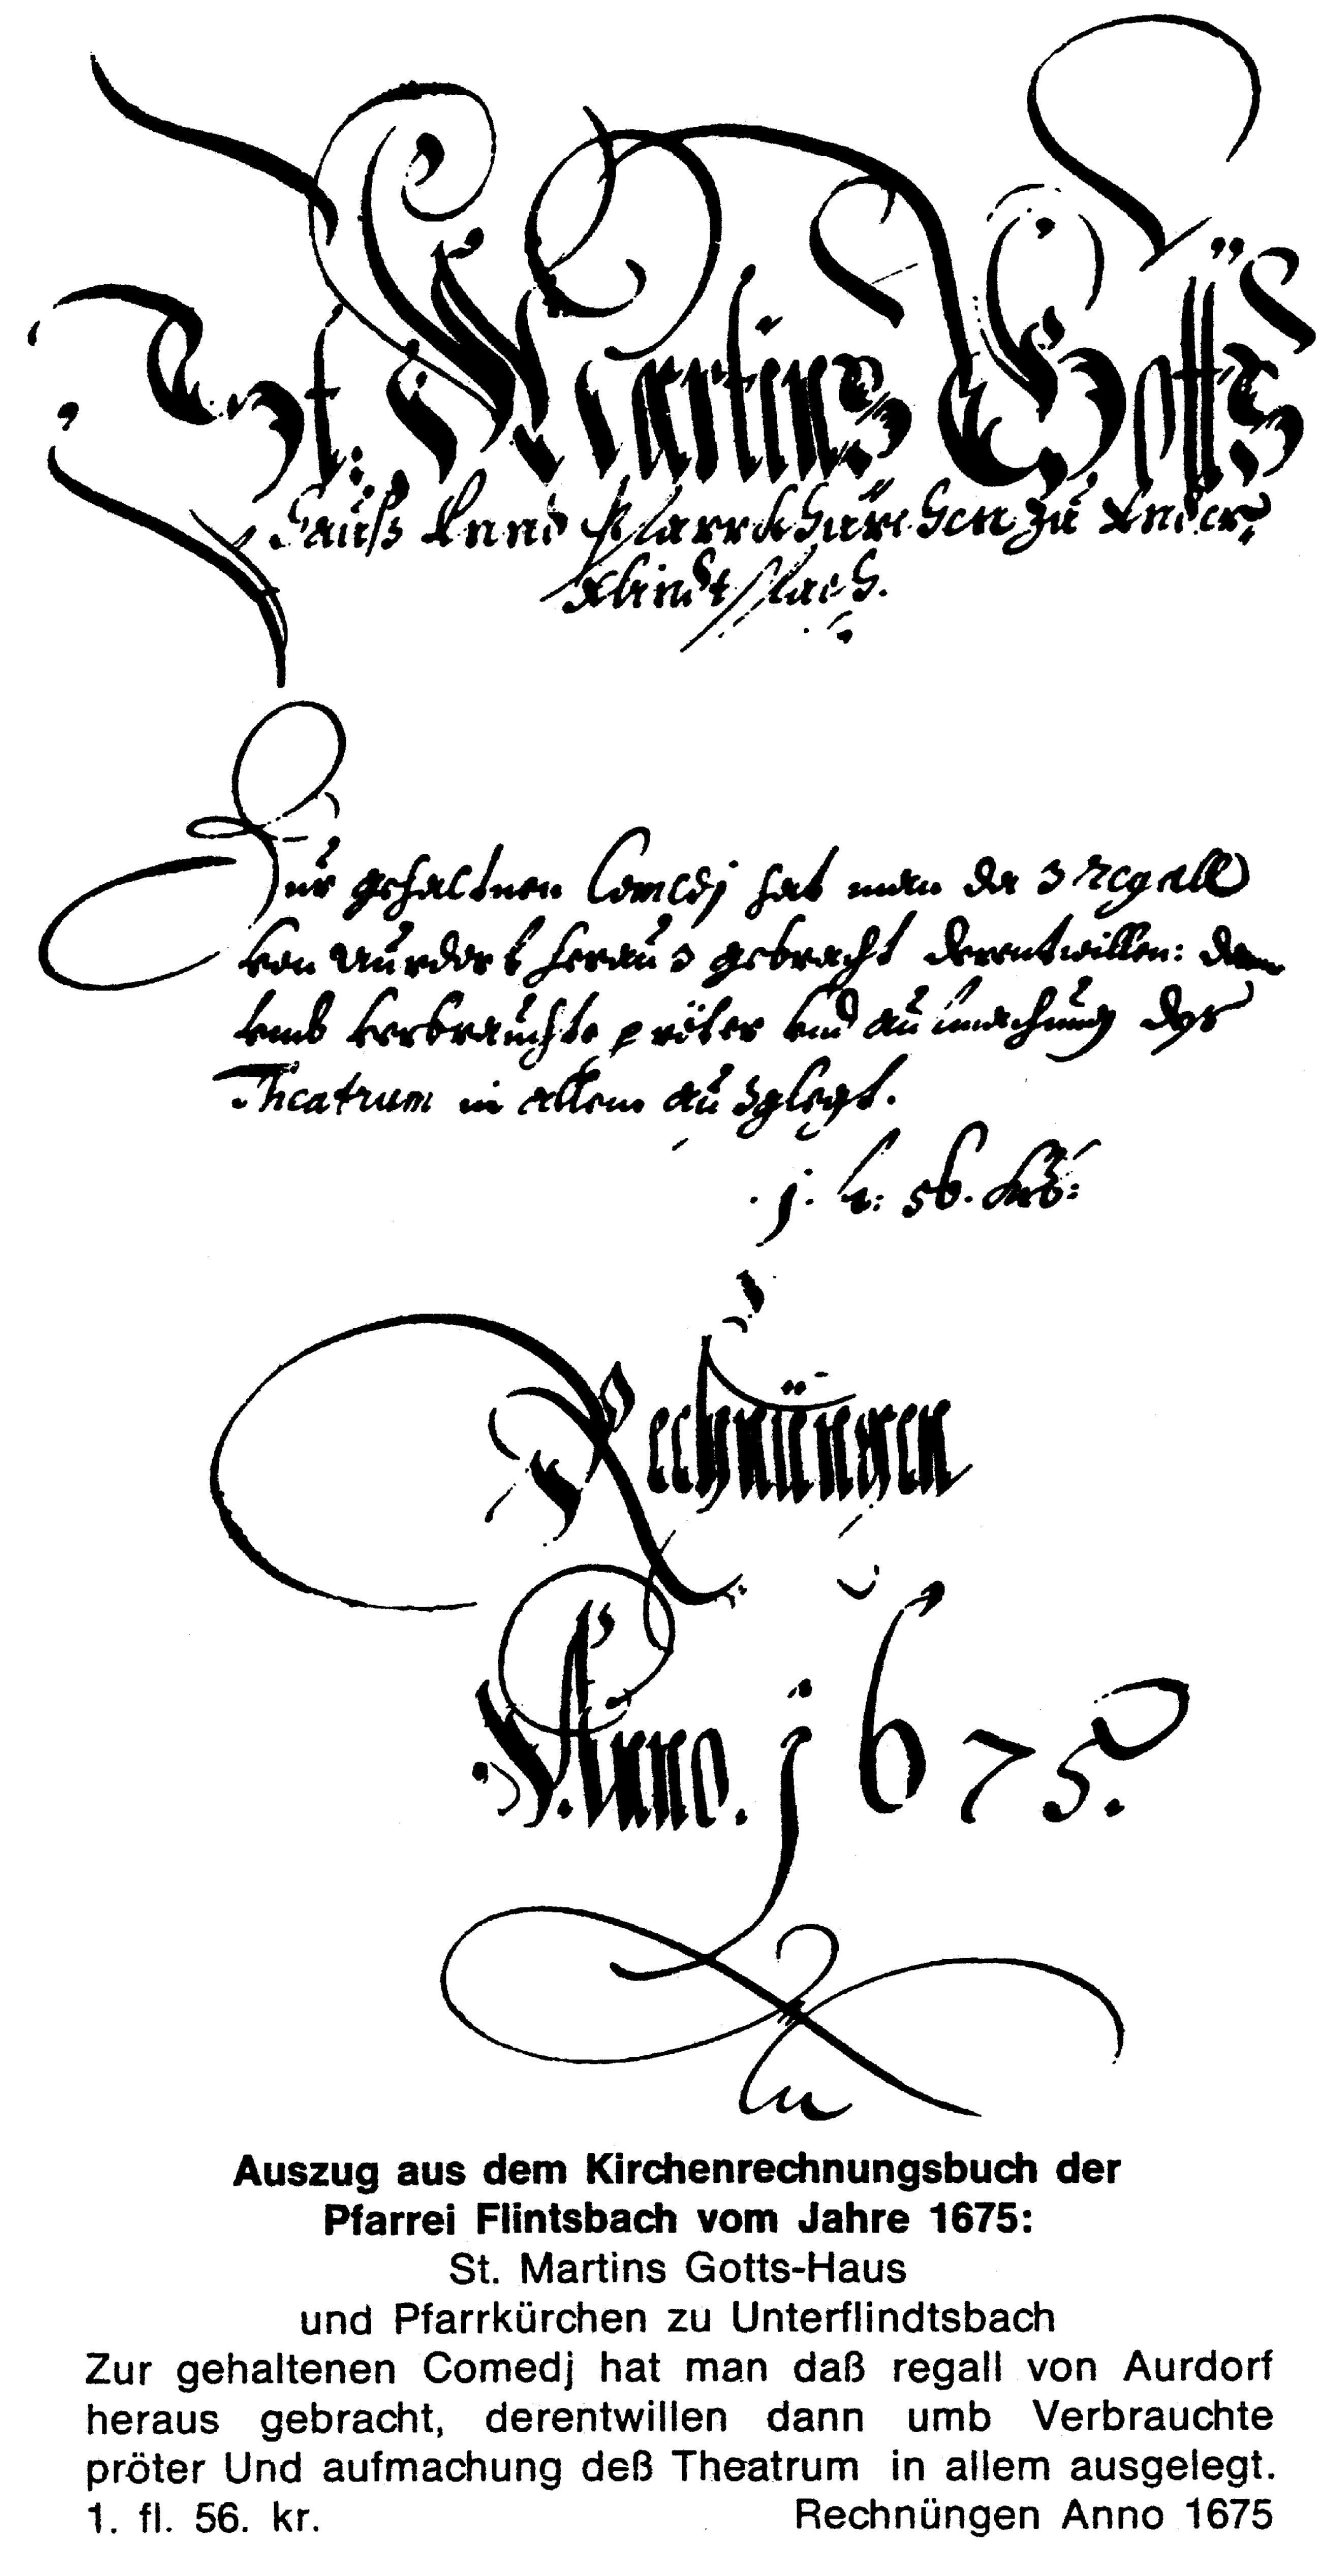 St. Martins Gotts
Hauß Unnd Pfarrkhürchen zu Under
flindtspach.
Zur gehaltnen Comedj hat man daß Regall
von Aurdorf herauß gebracht derentwillen: dann
umb verbrauchte pröter und aufmachung deß
Theatrum in allem außglegt.
1. fl: 56. kr:
Rechnüngen
Anno. 1675.
Auszug aus dem Kirchenrechnungsbuch der
Pfarrei Flintsbach vom Jahre 1675:
St. Martins Gotts-Haus
und Pfarrkürchen zu Unterflindtsbach
Zur gehaltenen Comedj hat man daß regall von Aurdorf
heraus gebracht, derentwillen dann umb Verbrauchte
pröter Und aufmachung deß Theatrum in allem ausgelegt.
1. fl. 56. kr. Rechnüngen Anno 1675